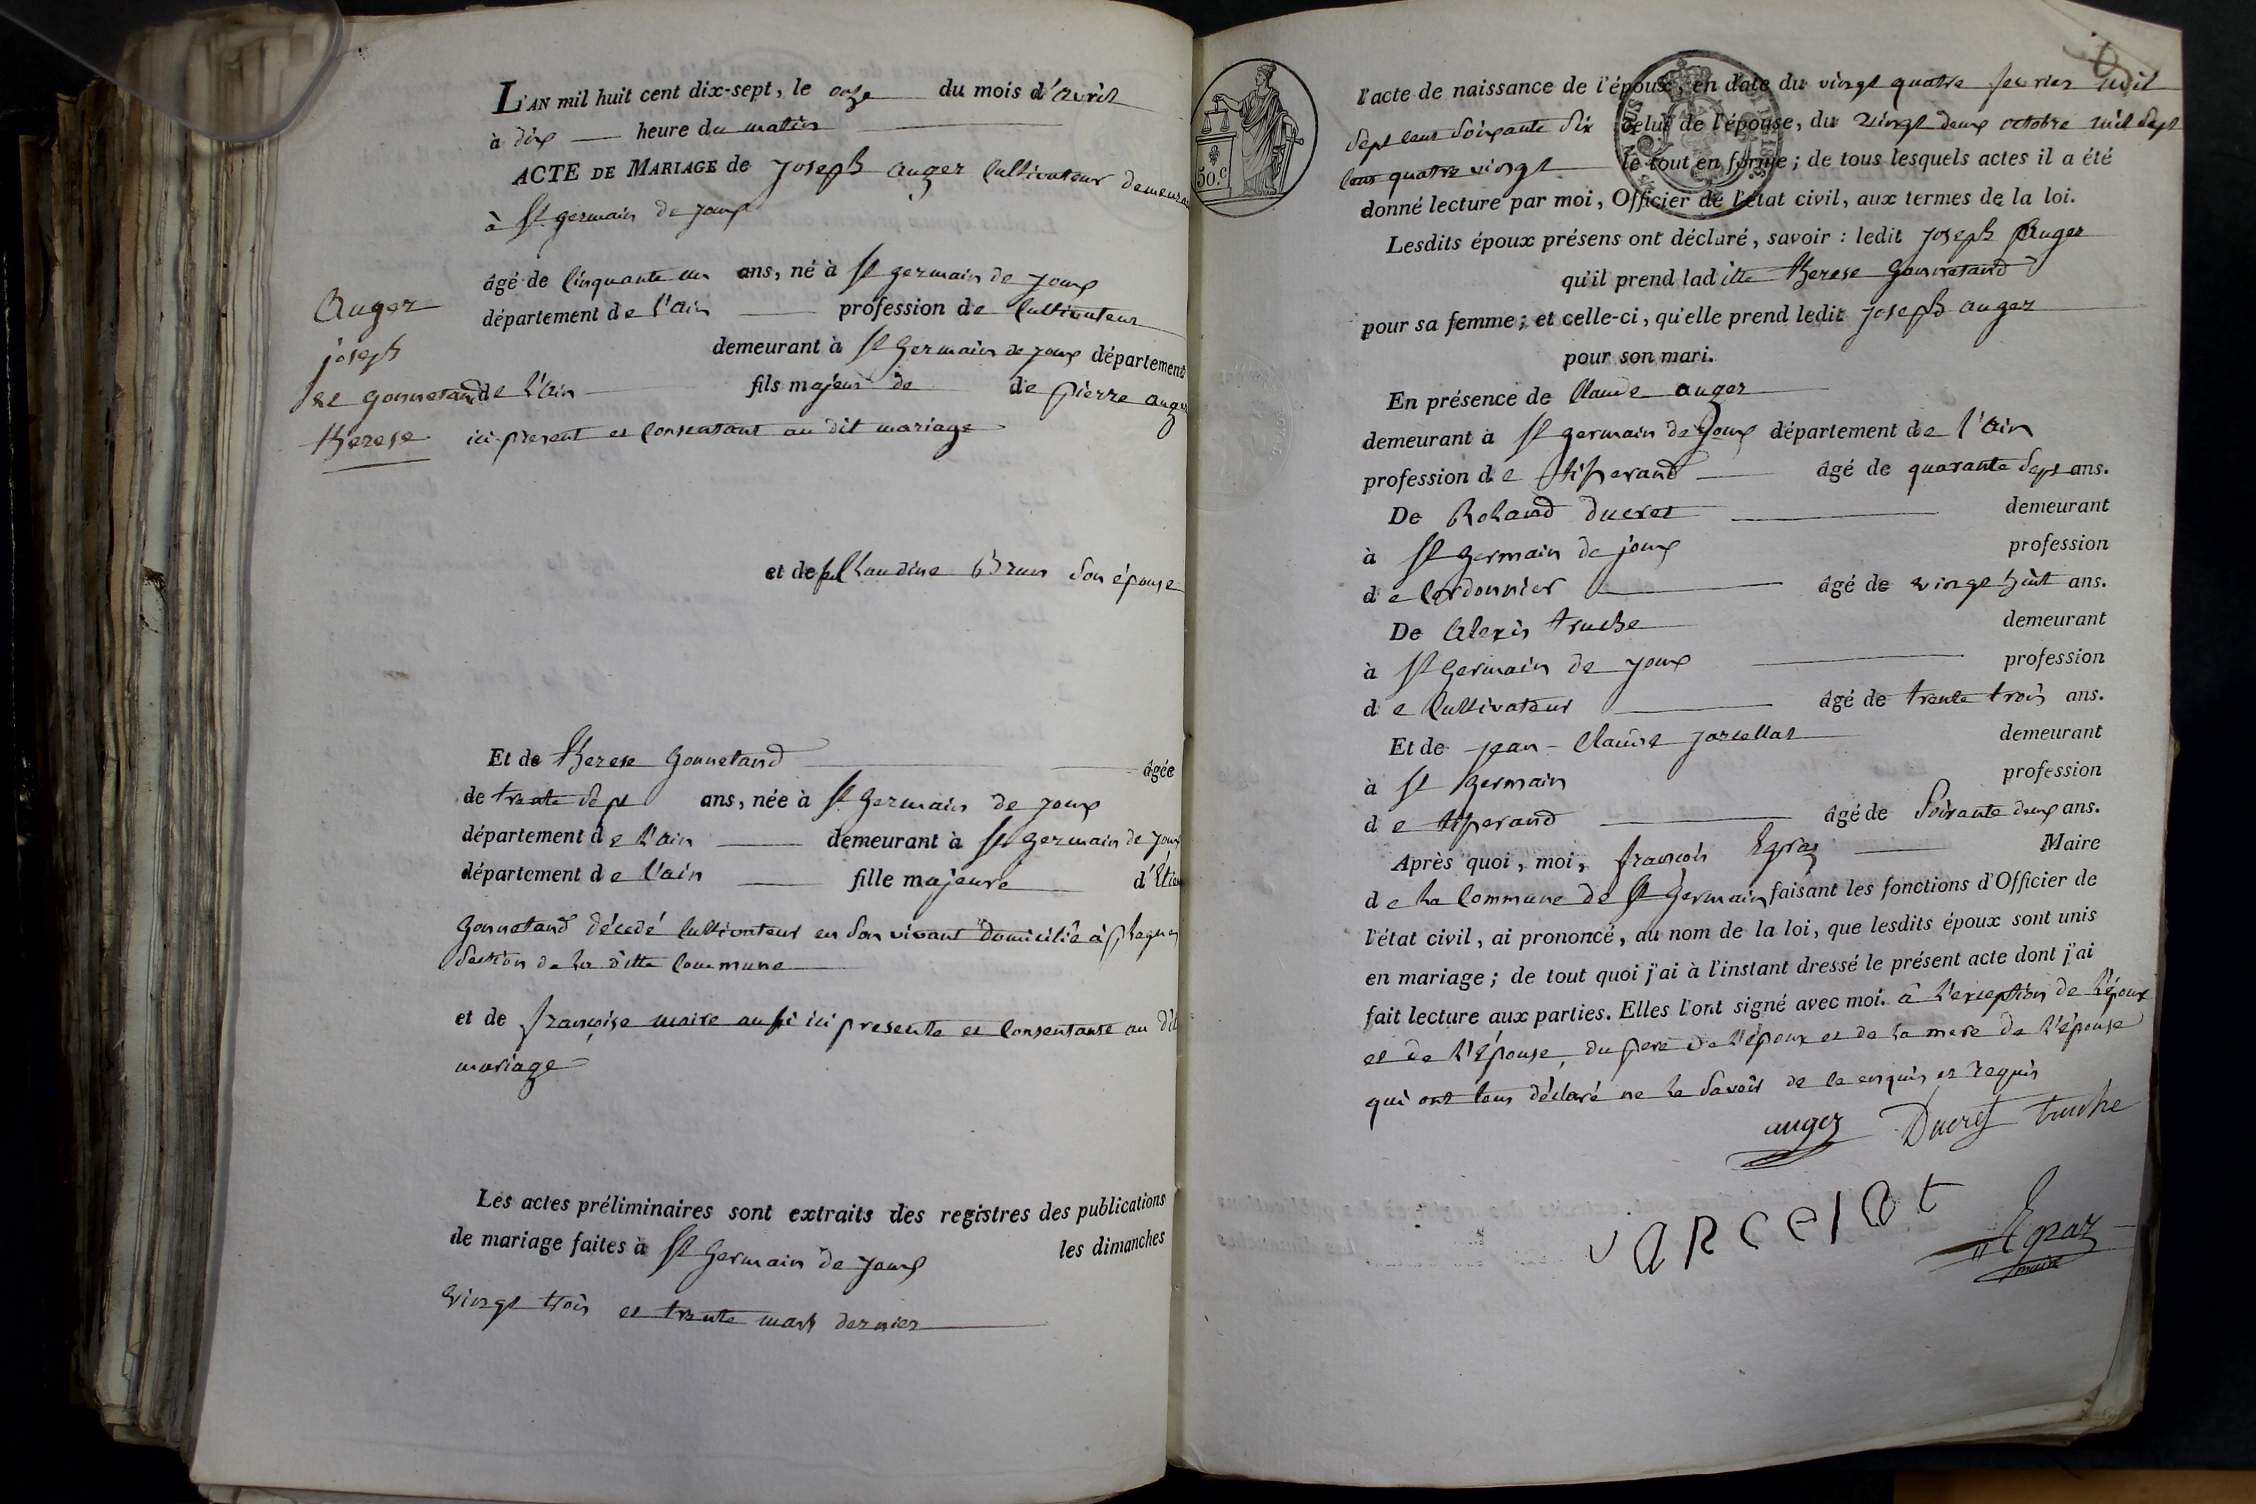 L'AN mil huit cent dix-sept, le onze du mois d'avril
à dix heure du matin
ACTE DE MARIAGE de joseph auger Cultivateur demeurant
à St germain de joux
âgé de Cinquante un ans, né à St germain de joux
département de l'ain profession de Cultivateur
demeurant à St Germain de joux département
de l'ain fils majeur de de pierre auger
ici present et Consentant au dit mariage
Auger
joseph
et gonnetand
therese
et de Claudine Brun Son épouse
Et de therese Gonnetand âgée
de trente Sept ans, née à St Germain de joux
département de l'ain demeurant à St Germain de joux
département de l'ain fille majeure d'Etienne
Gonnetand décédé Cultivateur en Son vivant domicilié à plagnes
Section de la ditte Commune
et de françoise maire aussi ici presente et Consentante au dit
mariage
Les actes préliminaires sont extraits des registres des publications
de mariage faites à St Germain de joux les dimanches
vingt trois et trente mars dernier
50.c
6
l'acte de naissance de l'époux, en date du vingt quatre fevrier mil
Sept Cent Soixante Six celui de l'épouse, du vingt deux octobre mil Sept
Cent quatre vingt le tout en forme ; de tous lesquels actes il a été
donné lecture par moi, Officier de l'état civil, aux termes de la loi.
Lesdits époux présens ont déclaré, savoir : ledit joseph Auger
qu'il prend laditte therese Gonnetand
pour sa femme ; et celle-ci, qu'elle prend ledit joseph auger
pour son mari.
En présence de Claude auger
demeurant à St germain de joux département de l'ain
profession de tisserand âgé de quarante Sept ans.
De Roland Ducret demeurant
à St Germain de joux profession
de Cordonnier âgé de vingt huit ans.
De Alexis truche demeurant
à St Germain de joux profession
de Cultivateur âgé de trente trois ans.
Et de jean-Claude jarcellat demeurant
à St Germain profession
de tisserand âgé de Soixante deux ans.
Après quoi, moi, françois Egraz Maire
de la Commune de St Germain faisant les fonctions d'Officier de
l'état civil, ai prononcé, au nom de la loi, que lesdits époux sont unis
en mariage ; de tout quoi j'ai à l'instant dressé le présent acte dont j'ai
fait lecture aux parties. Elles l'ont signé avec moi. à l'exception de l'époux
et de l'épouse, du pere de l'époux et de la mere de l'épouse
qui ont tous déclaré ne le Savoir de ce enquis et requis
auger Ducret truche
jARcelat
Egraz
maire